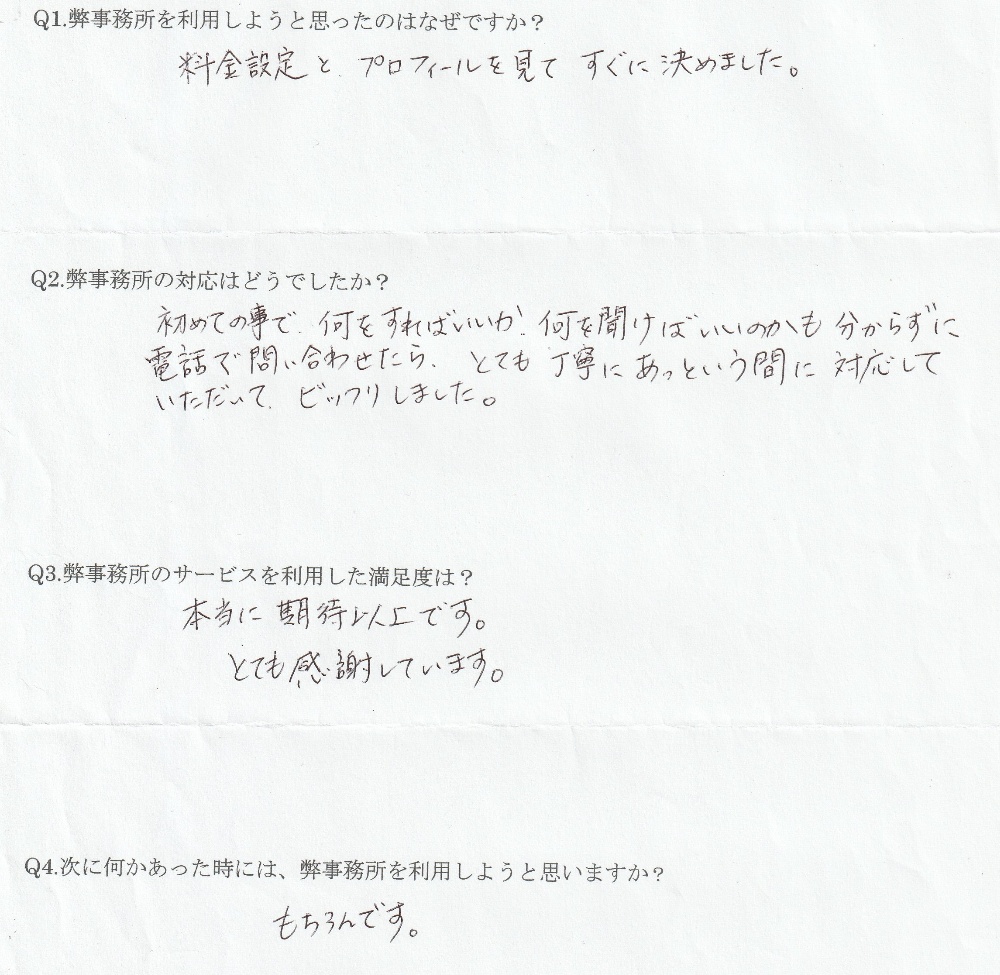 Q1.弊事務所を利用しようと思ったのはなぜですか？
料金設定と、プロフィールを見て すぐに決めました。
Q2.弊事務所の対応はどうでしたか？
初めての事で、何をすればいいか、何を聞けばいいのかも分からずに
電話で問い合わせたら、とても丁寧にあっという間に対応して
いただいて、ビックリしました。
Q3.弊事務所のサービスを利用した満足度は？
本当に期待以上です。
とても感謝しています。
Q4.次に何かあった時には、弊事務所を利用しようと思いますか？
もちろんです。